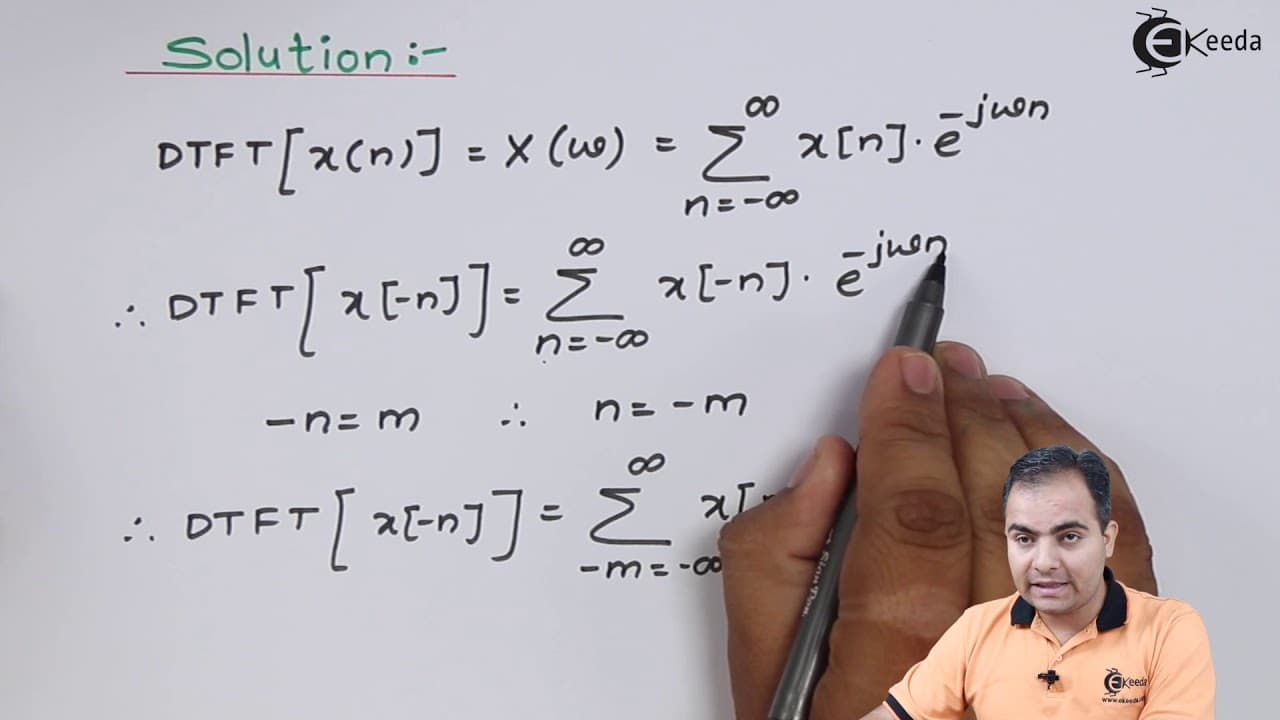 Solution :-
EKeeda
DTFT[x(n)] = X(ω) = ∑_{n=-∞}^{∞} x[n] · e^{-jωn}
∴ DTFT[x[-n]] = ∑_{n=-∞}^{∞} x[-n] · e^{-jωn}
-n = m ∴ n = -m
∴ DTFT[x[-n]] = ∑_{-m=-∞}^{∞} x[
EKeeda